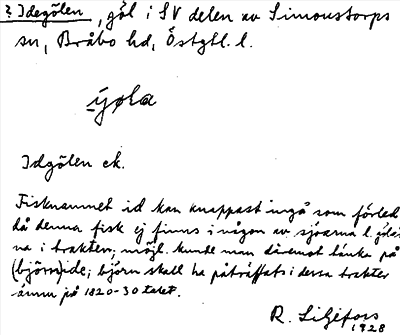 ? Idegölen, göl i SV delen av Simonstorps
sn, Bråbo hd, Östgtl. l.
-ýøla
Idgölen ek.
Fisknamnet id kan knappast ingå som förled
då denna fisk ej finns i någon av sjöarna l. göla
na i trakten; möjl. kunde man däremot tänka på
(björn)ide; björn skall ha påträffats i dessa trakter
ännu på 1820-30 talet.
R. Liljefors
1928